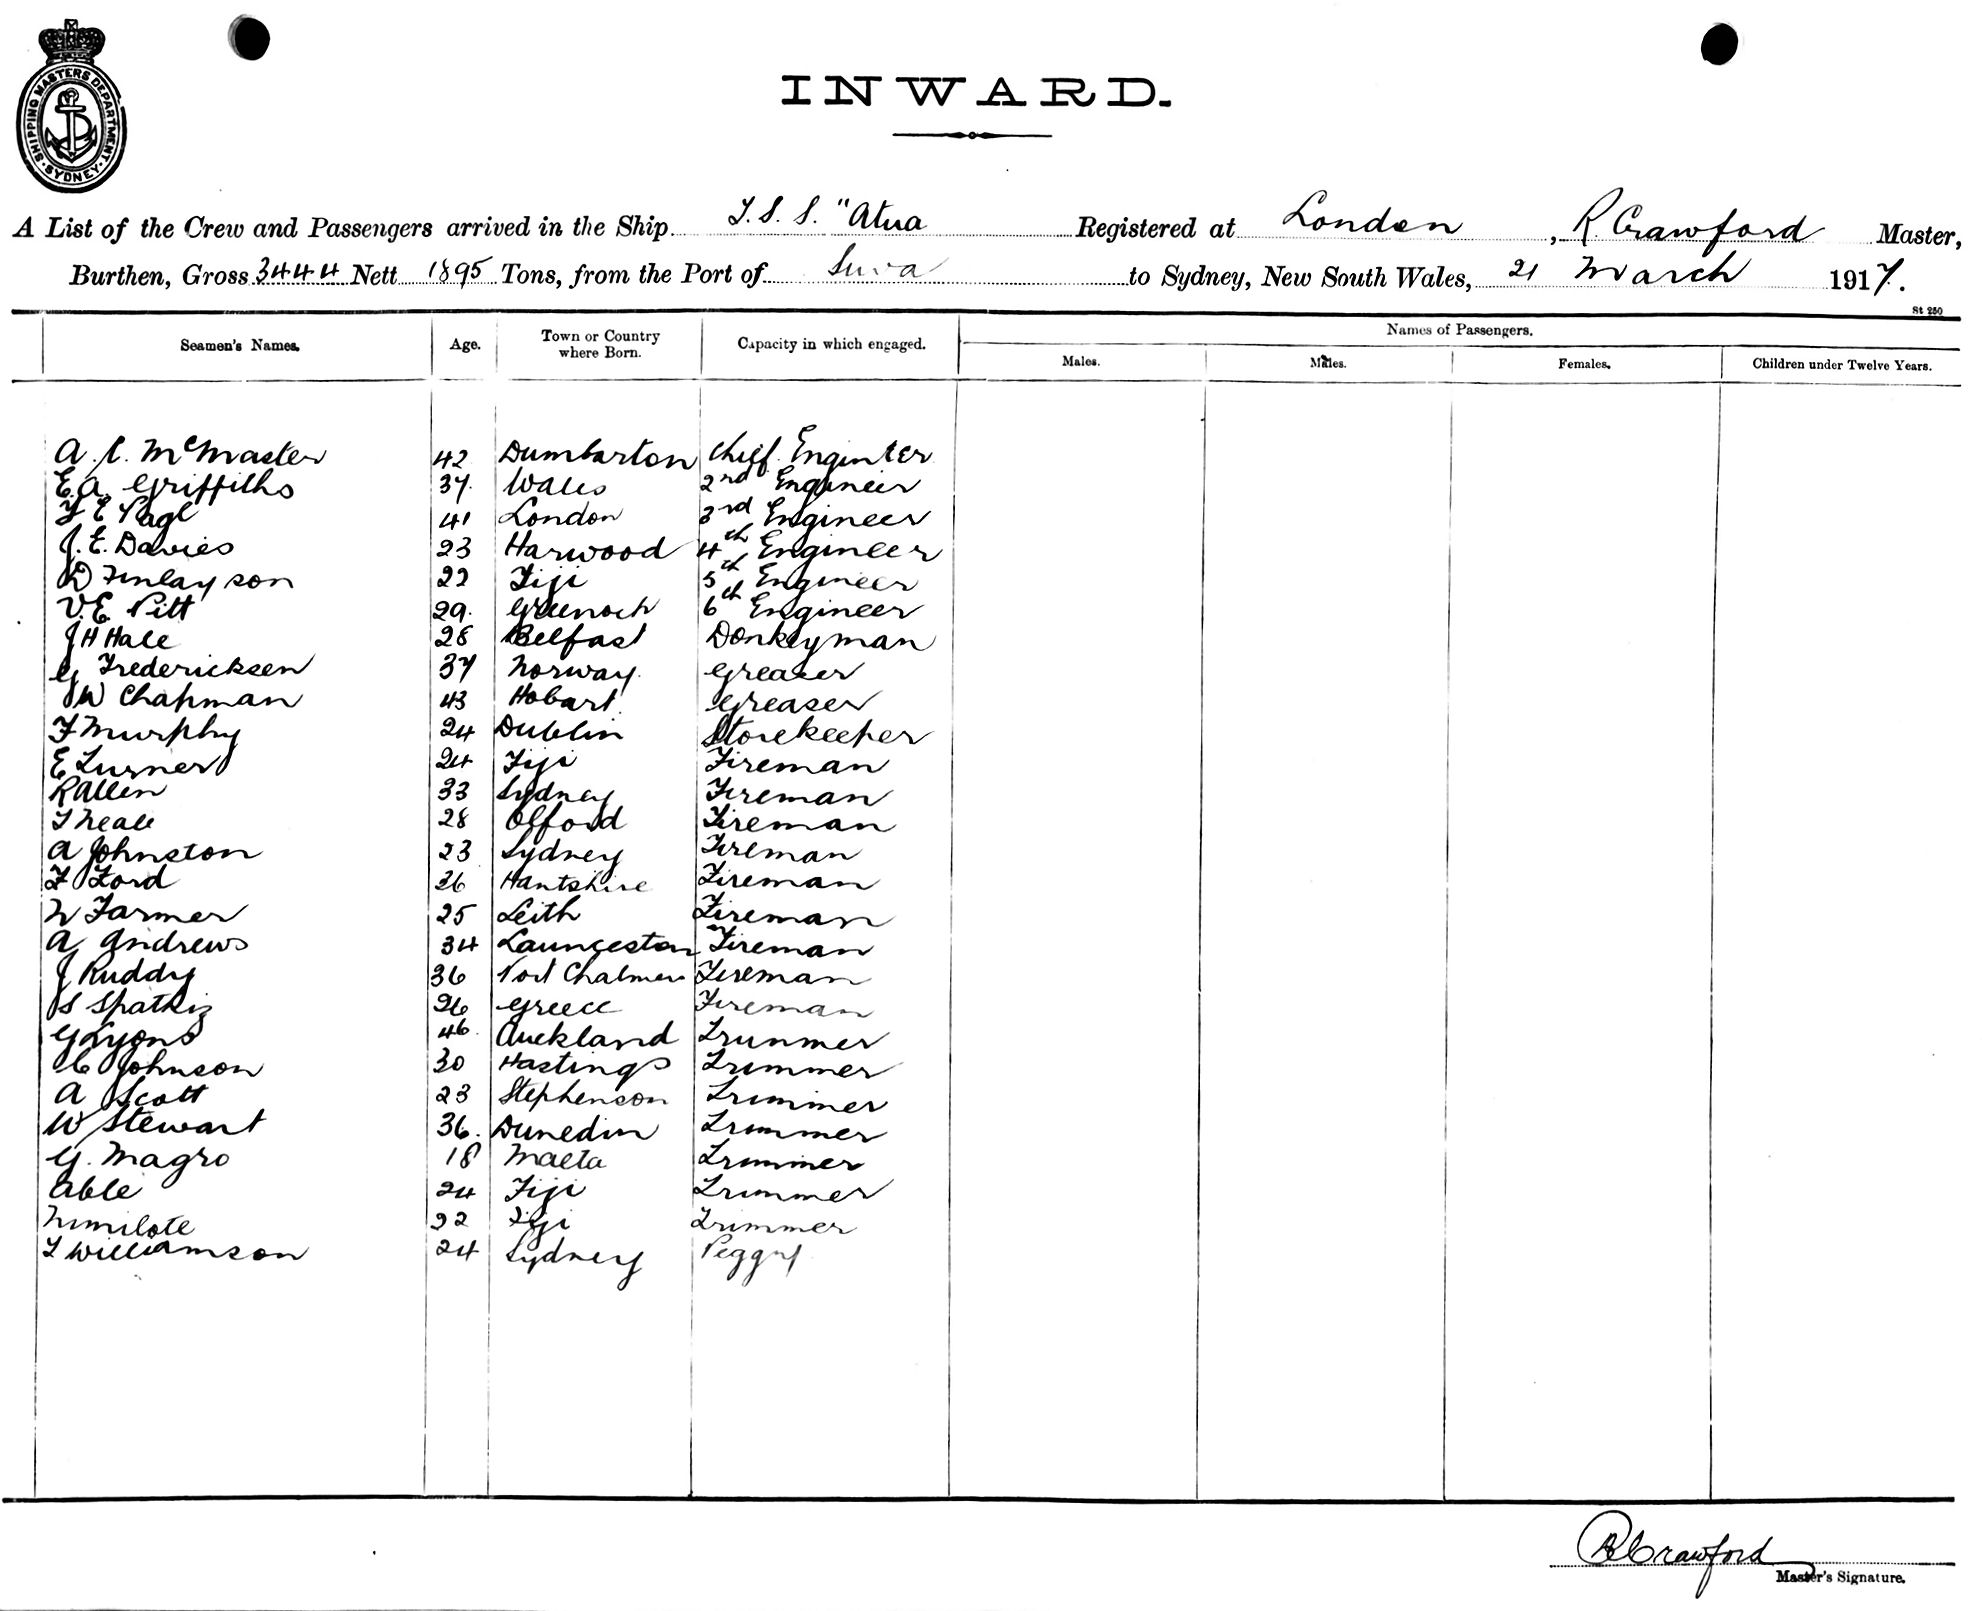 SHIPPING MASTERS DEPARTMENT · SYDNEY ·
INWARD.
A List of the Crew and Passengers arrived in the Ship T.S.S. "Atua Registered at London, R. Crawford Master,
Burthen, Gross 3444 Nett 1895 Tons, from the Port of Suva to Sydney, New South Wales, 21 March 1917.
St 250
Seamen's Names. Age. Town or Country where Born. Capacity in which engaged. Names of Passengers.
Males. Males. Females. Children under Twelve Years.
A. C. McMaster 42 Dumbarton Chief Engineer
E.A. Griffiths 37 Wales 2nd Engineer
F E Page 41 London 3rd Engineer
J. E. Davies 23 Harwood 4th Engineer
D Finlayson 22 Fiji 5th Engineer
V.E. Pitt 29 Greenock 6th Engineer
J H Hale 28 Belfast Donkeyman
G Fredericksen 37 Norway Greaser
J W Chapman 43 Hobart Greaser
F Murphy 24 Dublin Storekeeper
E Turner 24 Fiji Fireman
R Allen 33 Sydney Fireman
T Neale 28 Fireman
A Johnston 23 Sydney Fireman
F Ford 36 Hantshire Fireman
W Farmer 25 Leith Fireman
A Andrews 34 Launceston Fireman
J Ruddy 36 Port Chalmers Fireman
S 26 Greece Fireman
G Lyons 46 Auckland Trimmer
C Johnson 30 Hastings Trimmer
A Scott 23 Stephenson Trimmer
W Stewart 36. Dunedin Trimmer
G. Magro 18 Malta Trimmer
Able 24 Fiji Trimmer
22 Fiji Trimmer
T Williamson 24 Sydney Peggy
R Crawford
Master's Signature.